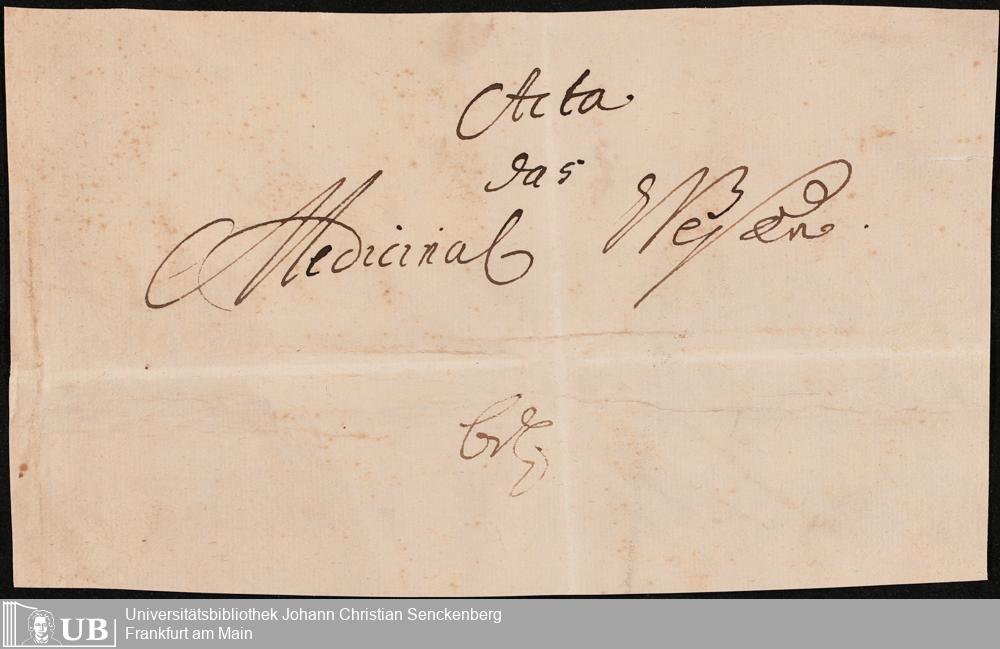 Acta
das
Medicinal Weßen.
UB
Universitätsbibliothek Johann Christian Senckenberg
Frankfurt am Main